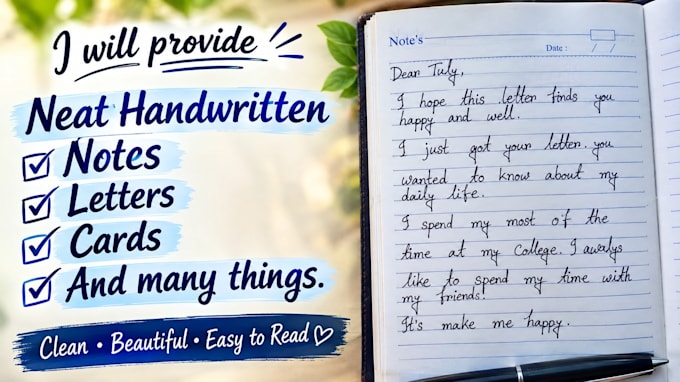 I will provide
Neat Handwritten
Notes
Letters
Cards
And many things.
Clean • Beautiful • Easy to Read
Note's
Date : / /
Dear Tuly,
I hope this letter finds you
happy and well.
I just got your letter. you
wanted to know about my
daily life.
I spend my most of the
time at my College. I awalys
like to spend my time with
my friends!
It's make me happy.